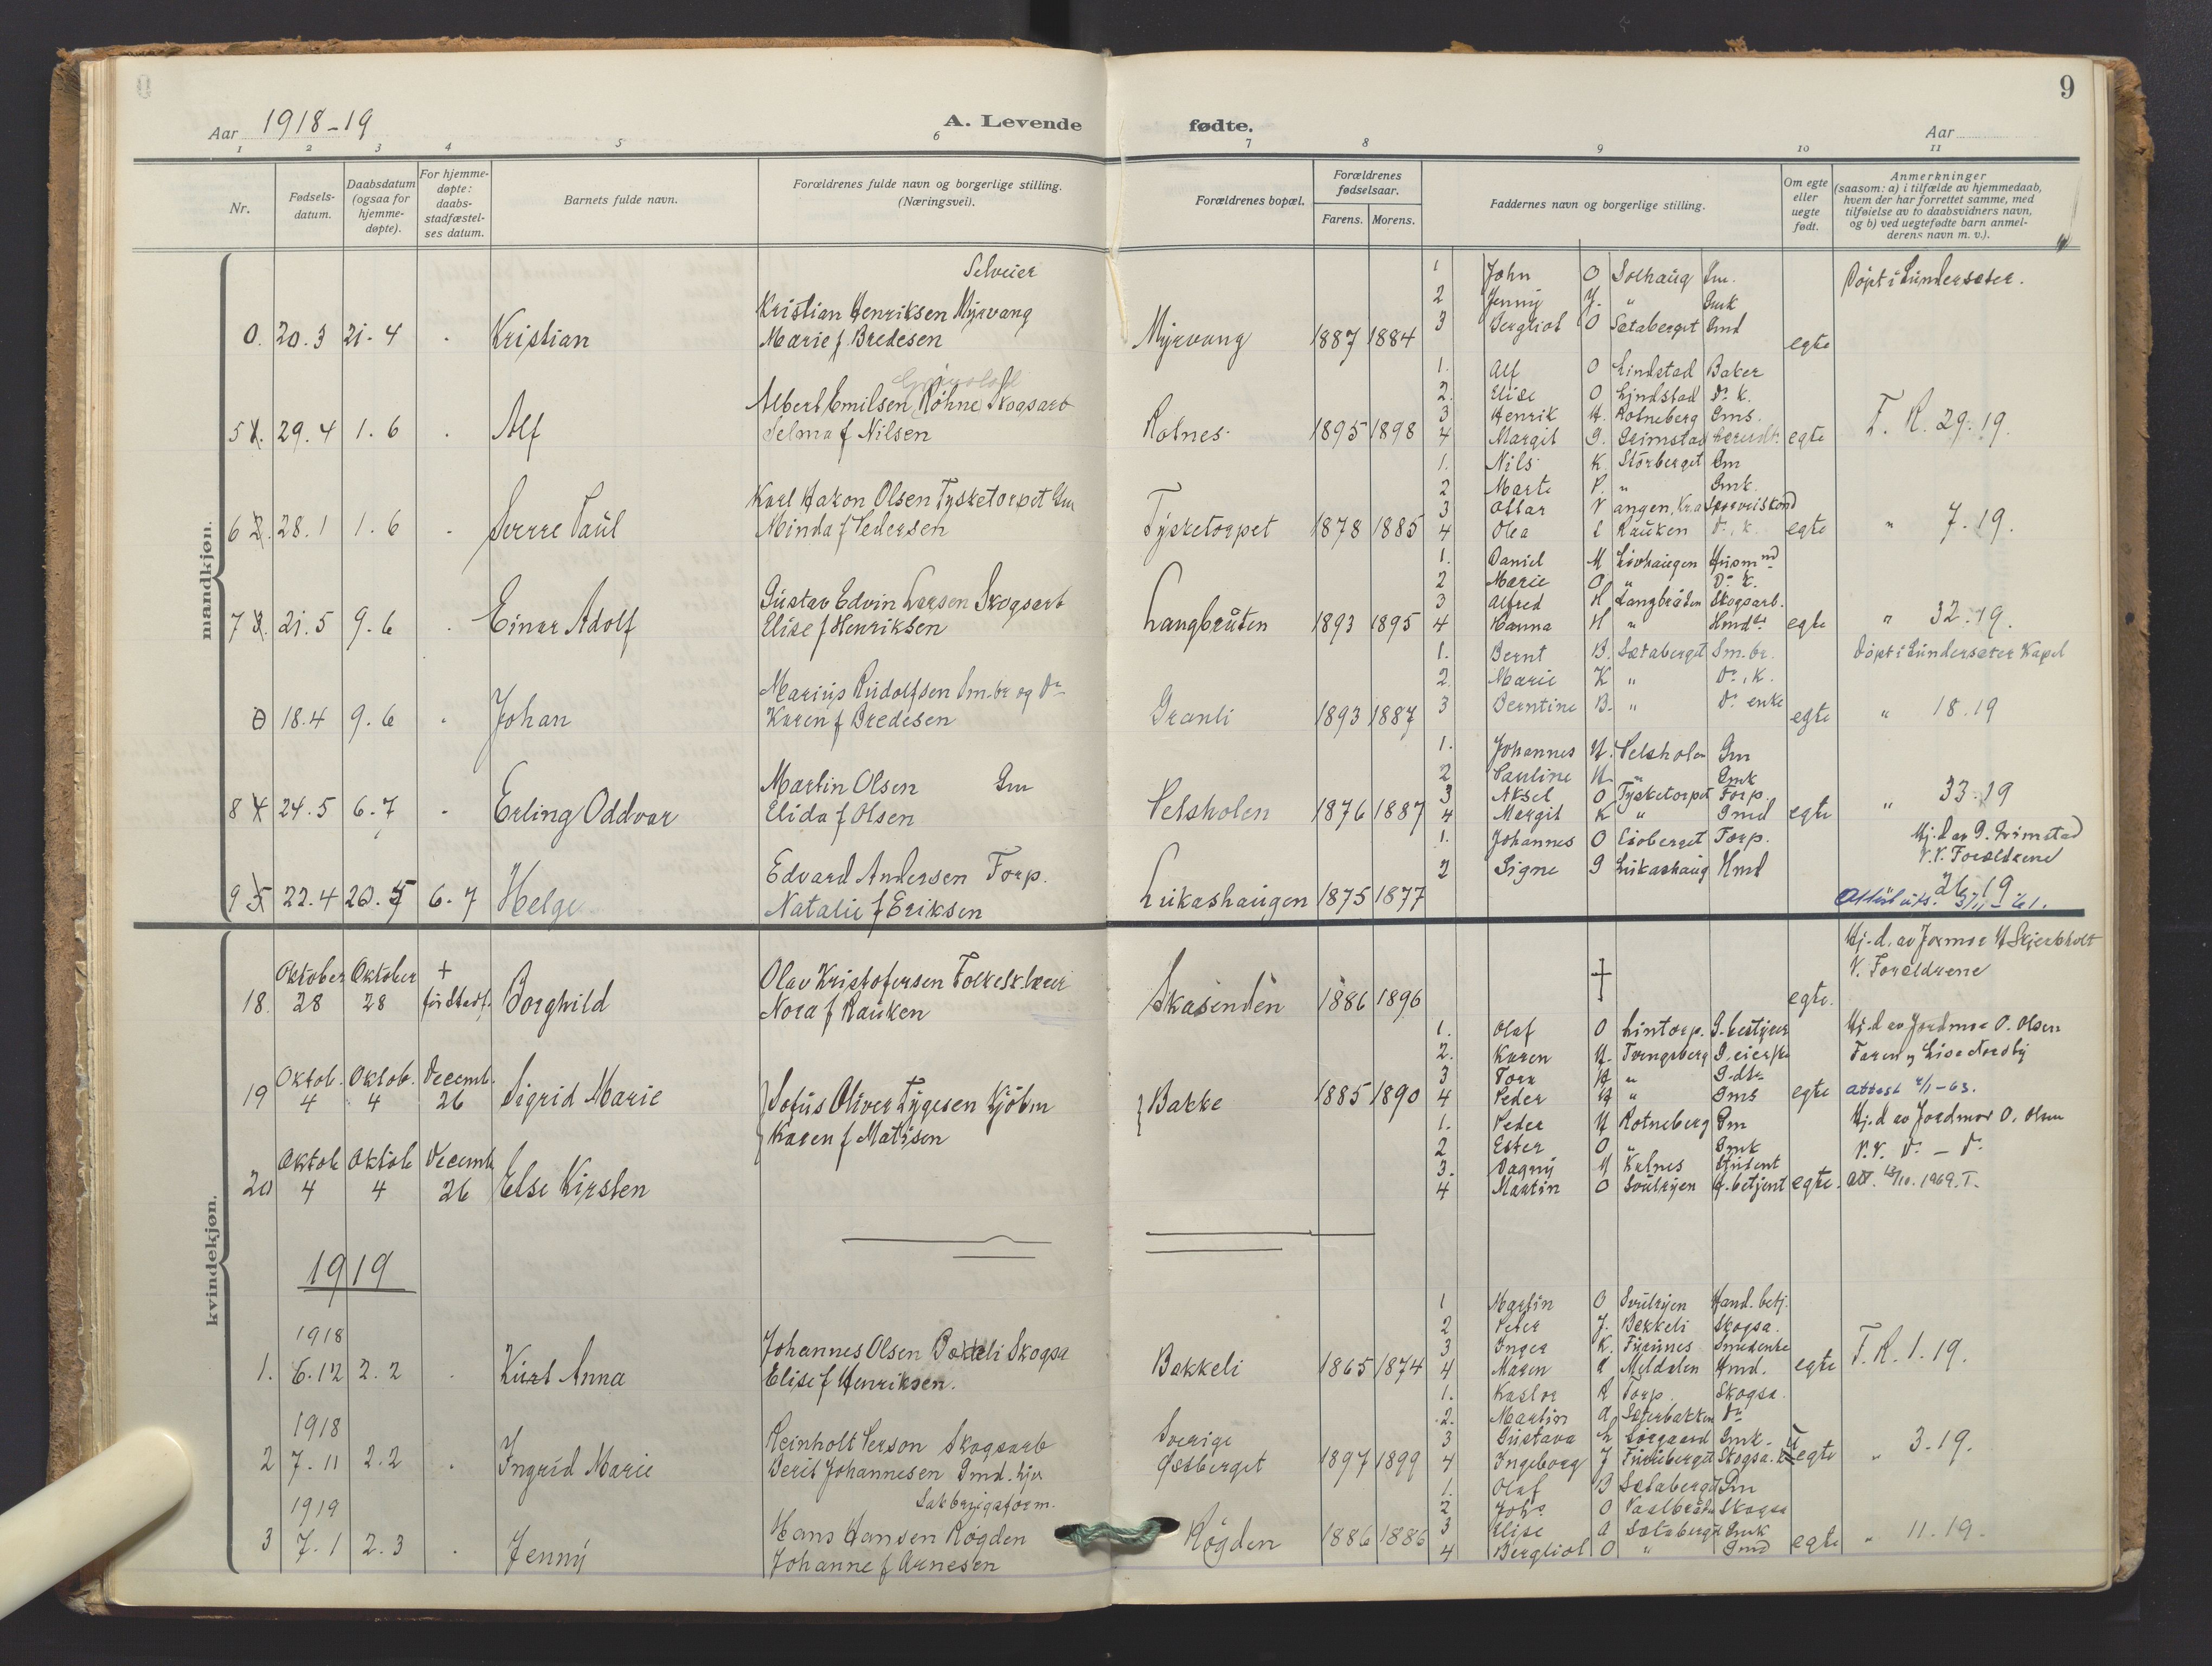 9
Aar 1918-19
A. Levende
fødte.
Aar
1 2 3 4 5 6 7 8 9 10 11
Nr.
Fødsels-
datum.
Daabsdatum
(ogsaa for
hjemme-
døpte).
For hjemme-
døpte:
daabs-
stadfæstel-
ses datum.
Barnets fulde navn.
Forældrenes fulde navn og borgerlige stilling.
(Næringsvei).
Forældrenes bopæl.
Forældrenes
fødselsaar.
Farens. Morens.
Faddernes navn og borgerlige stilling.
Om egte
eller
uegte
født.
Anmerkninger
(saasom: a) i tilfælde av hjemmedaab,
hvem der har forrettet samme, med
tilføielse av to daabsvidners navn,
og b) ved uegtefødte barn anmel-
derens navn m. v.).
mandkjøn.
Selveier
Kristian Henriksen Myrvang
0. 20.3 21.4 Kristian Marie f. Bredesen Myrvang 1887 1884 egte
1 John O Solhaug Gm.
2 Jenny " Gmk
3 Bergliot O Sætaberget Gmd
Døpt i Lundersæter.
Albert Emilsen Röhne Skogsarb
5 29.4 1.6 Alf Selma f Nilsen Rotnes 1895 1898 egte
1. Alf O Lindstad Baker
2. Elise O Lindstad Do. k.
3 Henrik H. Rotneberg Gms.
4 Margit G. Grimstad
F. R. 29.19.
Karl Hakon Olsen Tysketorpet Gm
6 28.1 1.6 Sverre Paul Minda f Pedersen Tysketorpet 1878 1885 egte
1. Nils K. Storberget Gm
2 Marte P. " Gmk.
3 Ottar
4 Olea Rauken Do. k.
" 7.19.
Gustav Edvin Larsen Skogsarb
7 21.5 9.6 Einar Adolf Elise f Henriksen Langbråten 1893 1895 egte
1. Daniel M Livhaugen Husmnd
2 Marie O " Do. k.
3 Alfred H Langbråten Skogsarb.
4 Hanna H "
" 32.19.
Marius Rudolfsen Sm.br og Do
0 18.4 9.6 Johan Karen f Bredesen Granli 1893 1887 egte
1. Bernt B. Sætaberget Sm.br.
2. Marie K " Do. k.
3 Berntine B. " Do enke
Døpt i Lundersæter Kapel
" 18.19
Martin Olsen Gm
8 24.5 6.7 Erling Oddvar Elida f Olsen Velsholen 1876 1887 egte
1. Johannes N. Velsholen Gm
2 Pauline N. " Gmk
3 Aksel O Tysketorpet Forp.
4 Margit K " Gmd
" 33.19
Edvard Andersen Forp.
9 22.4 20.5 6.7 Helge Natalie f Eriksen Lukashaugen 1875 1877
1. Johannes O Lioberget Forp.
2 Signe G Lukashaug Hmd
Hj.d av G. Grimstad
V.V. Forældrene
26.19.
kvindekjøn.
Oktober Oktober +
18. 28 28 Borghild
Olav Kristofersen Folkesk.lærer
Nora f Rauken
Skasenden 1886 1896 egte.
Hj.d. av Jormor
V. Forældrene
Oktob. Oktob. Decemb.
19 4 4 26 Sigrid Marie
Sofus Oliver Tygesen Kjöbm
Karen f Matisen
Bakke 1885 1890 egte
1. Olaf O Lintorp. G.bestyrer
2. Karen
3 Tora "
4 Peder " Gms
Hj.d av Jordmor O. Olsen
attest 4/1-63.
Oktob Oktob Decemb
20 4 4 26 Else Kirsten egte.
1. Peder N Rotneberg Gm
2 Ester O " Gmk
3. Dagny M Kulnes Student
4 Martin O Svulryen H.betjent
Hj.d av Jordmor O. Olsen
V.V. Do - Do
att. 13/10.1969.
1919
1918
Johannes Olsen Bakkeli Skogsa
1. 6.12 2.2 Anna Elise f Henriksen. Bakkeli 1865 1874 egte
1 Martin O Svulryen Hand.betj.
2 Peter J. Bakkeli Skogsa.
3 Inger K. Furunes Smedenke
4 Maren Meldalen Hmd.
F. R. 1.19.
1918
Reinholt Person Skogsarb
2 7.11 2.2 Ingrid Marie Berit Johannesen Gmd. hjm
Sverige
Østberget 1897 1899 Uegte
1. Kastor Torp. Skogsa.
2. Martin Sæterbakken Do
3 Gustava L Sørgaard Gmk.
4 Ingeborg J Furuberget Skogsa.
" 3.19.
1919
Hans Hansen Røgden
3 7.1 2.3 Jenny Johanne f Arnesen Røgden 1886 1886 egte
1. Olaf B Sætaberget Gm
2 Johs O Skogsa
3 Elise Sætaberget Gmk
4 Bergliot O " Gmd
" 11.19.